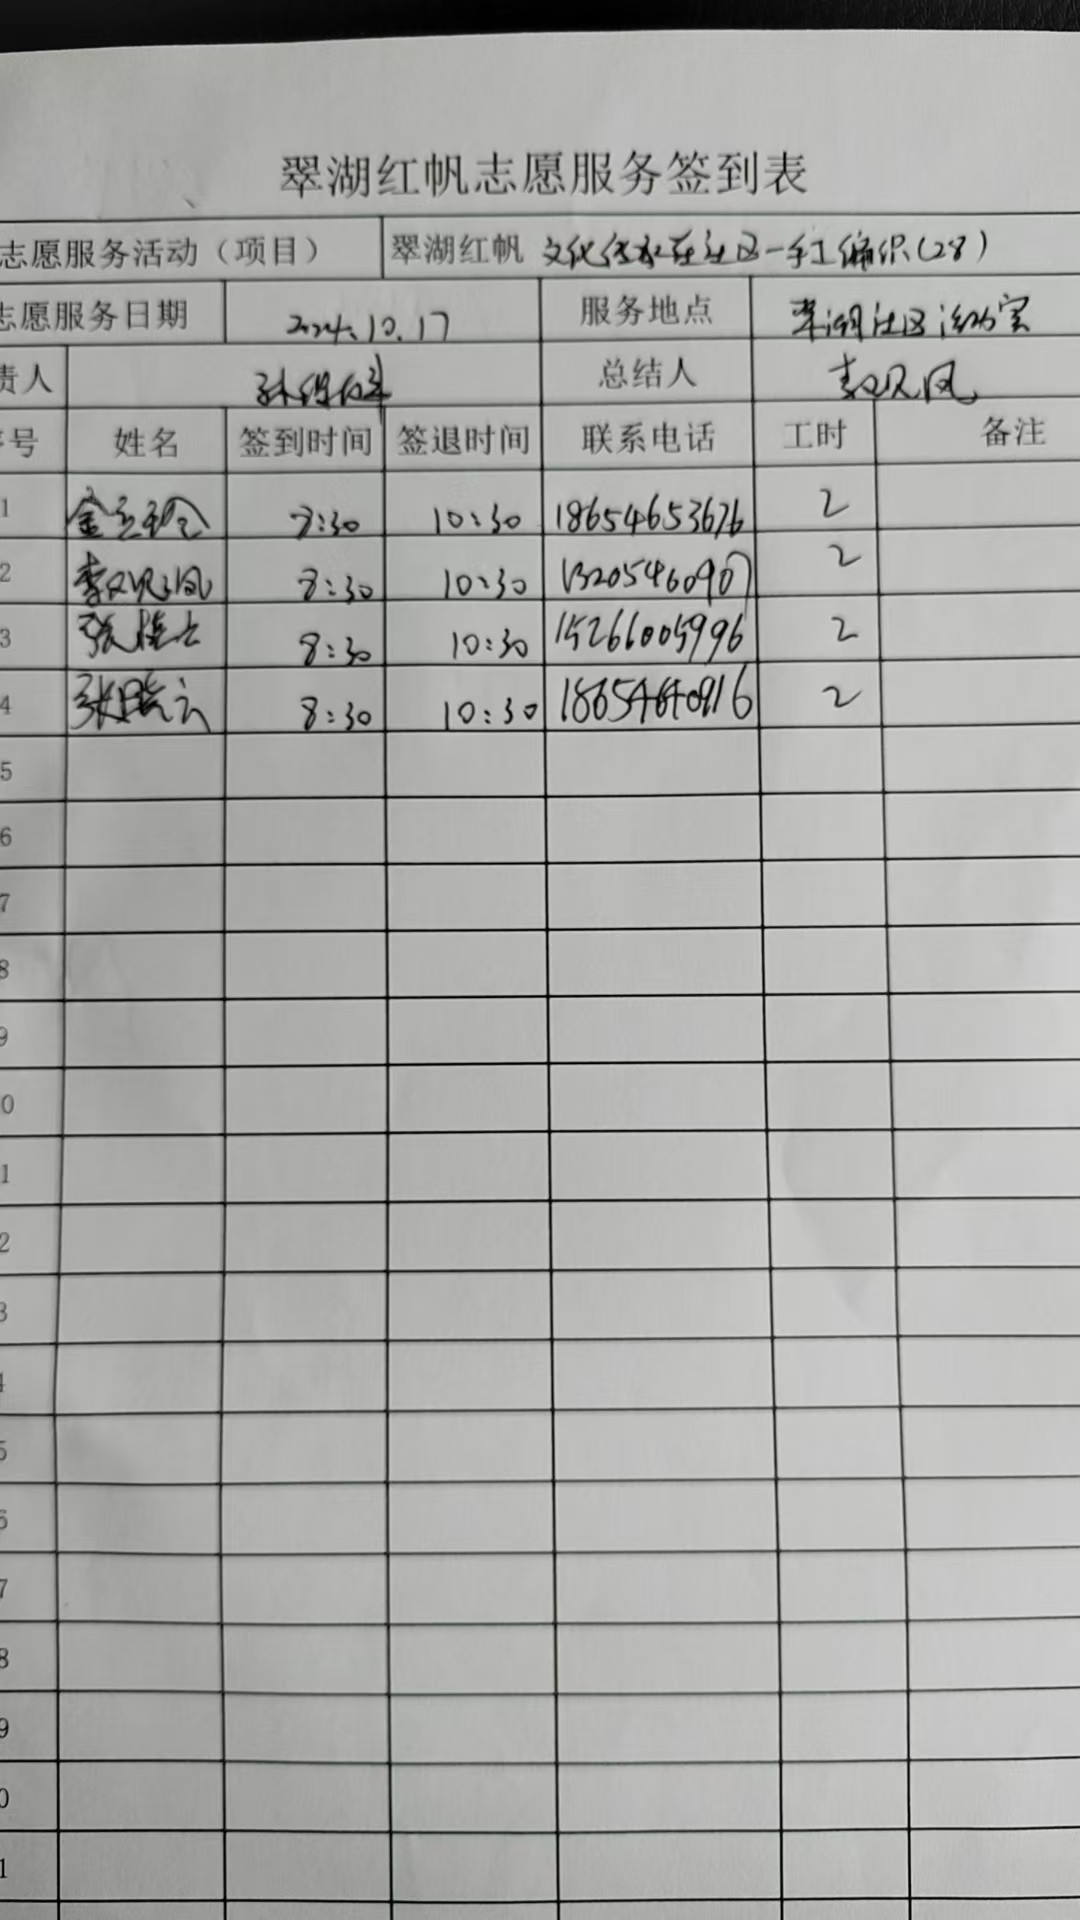 翠湖红帆志愿服务签到表
志愿服务活动（项目） 翠湖红帆 文化传承在社区一手工编织(28)
志愿服务日期 2024.10.17 服务地点 翠湖社区活动室
责人 总结人
序号 姓名 签到时间 签退时间 联系电话 工时 备注
1 8:30 10:30 18654653676 2
2 8:30 10:30 13205460907 2
3 8:30 10:30 15266005996 2
4 张晓云 8:30 10:30 2
5
6
7
8
9
0
1
2
3
4
5
6
7
8
9
0
1